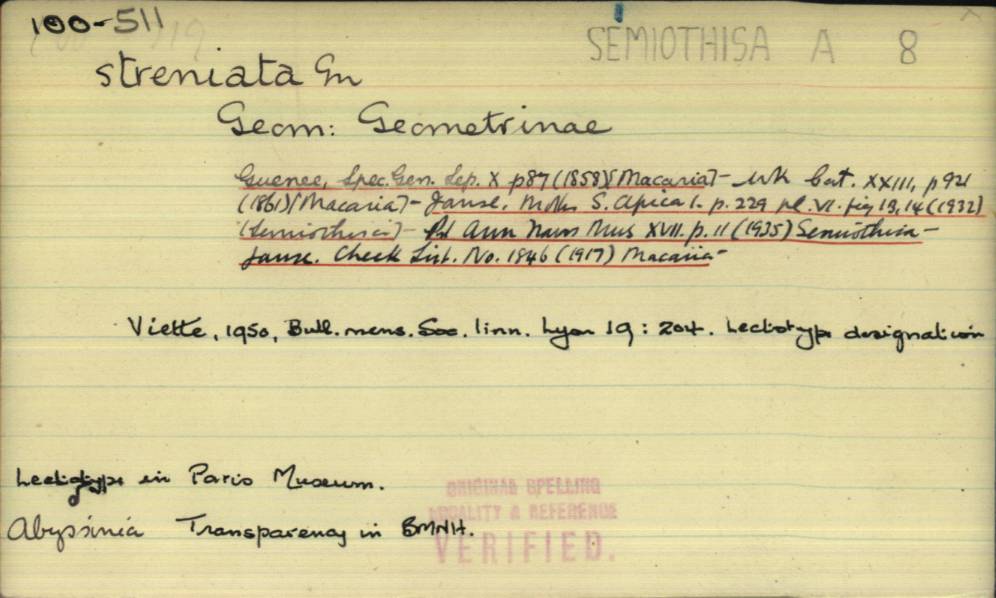 100-511
SEMIOTHISA A 8
streniata Gn
Geom: Geometrinae
Guenee, Spec. Gen. Lep. X p87 (1858) (Macaria) - Wlk Cat. XXIII, p 921
(1861) (Macaria) - Janse, Moths S. Africa 1. p. 229 pl. VI. fig 13, 14 (1932)
(Semiothisa) - Prt Ann Trans Mus XVII. p. 11 (1935) Semiothisa -
Janse. Check List. No. 1846 (1917) Macaria -
Viette, 1950, Bull. mens. Soc. linn. Lyon 19 : 204. Lectotype designation
Lectotype in Paris Museum.
Abyssinia Transparency in BMNH.
ORIGINAL SPELLING
LOCALITY & REFERENCE
VERIFIED.